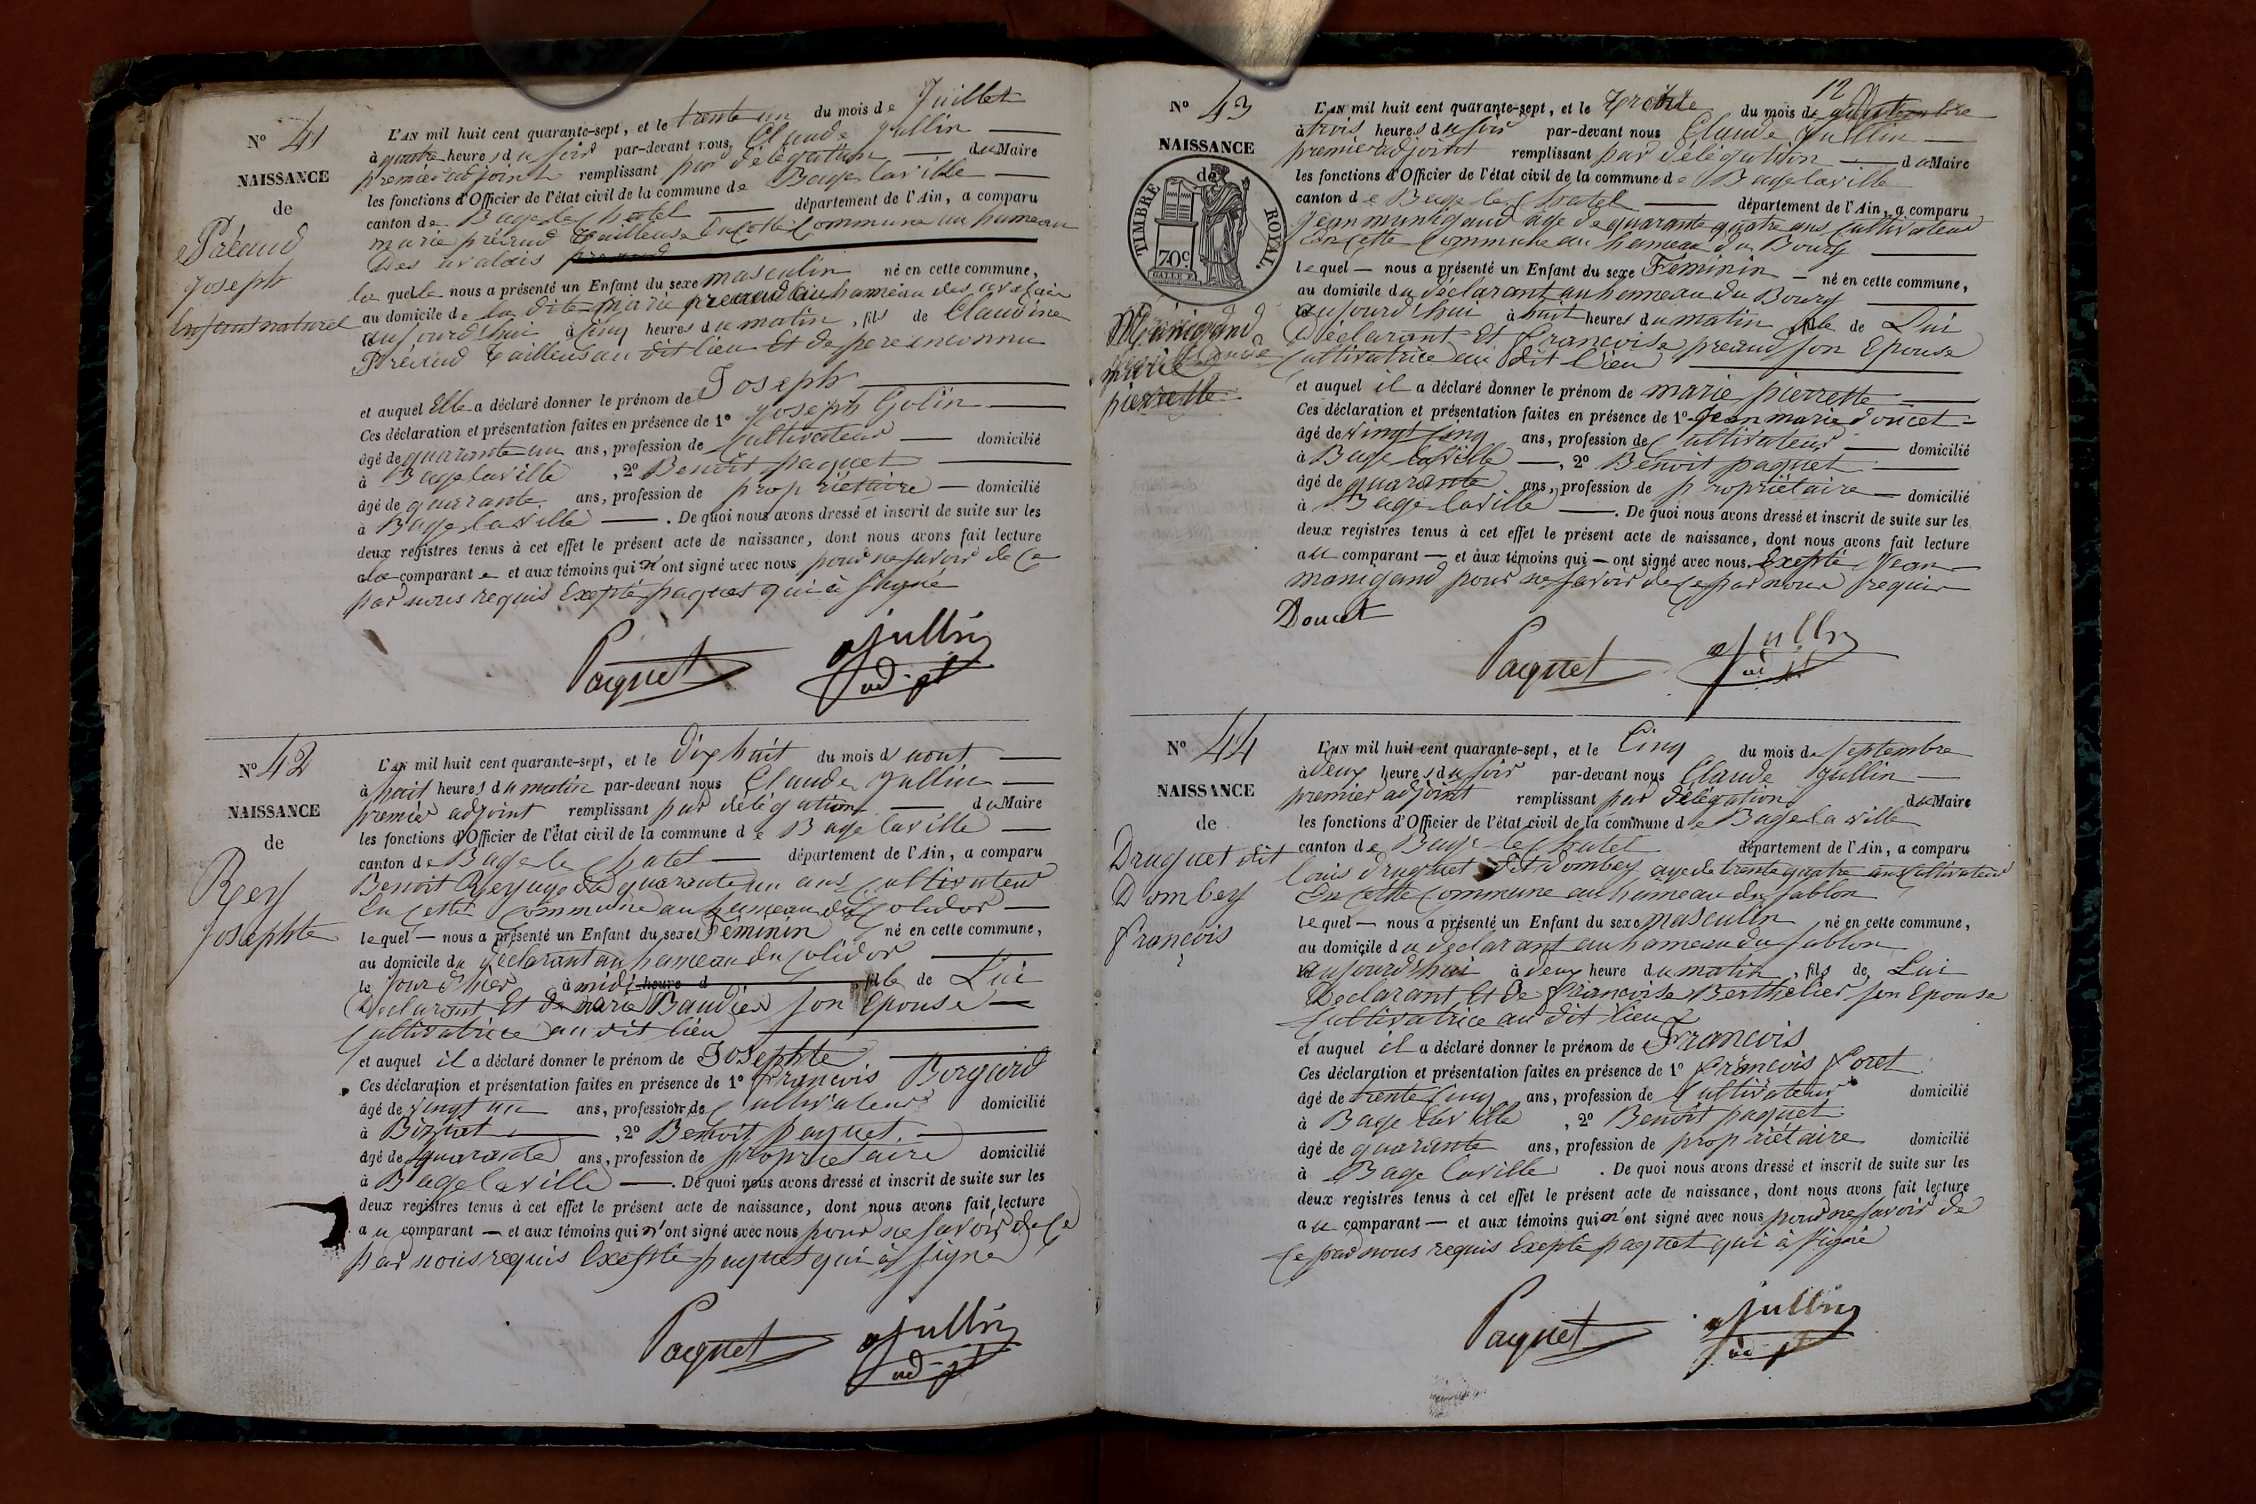 N° 41
NAISSANCE
de
Préaud
Joseph
Enfant naturel
L'AN mil huit cent quarante-sept, et le trente un du mois de Juillet
à quatre heures du soir par-devant nous Claude Jullin
premier adjoint remplissant par délégation du Maire
les fonctions d'Officier de l'état civil de la commune de Bage la ville
canton de Bage le Chatel département de l'Ain, a comparu
marie préaud tailleuse en cette Commune au hameau
Des
la quelle nous a présenté un Enfant du sexe masculin né en cette commune,
au domicile de la dite marie preaud au hameau des
aujourd'hui à cinq heures du matin, fils de Claudine
Préaud tailleuse au dit lieu Et de pere inconnu
et auquel Elle a déclaré donner le prénom de Joseph
Ces déclaration et présentation faites en présence de 1° Joseph Golin
âgé de quarante un ans, profession de Cultivateur domicilié
à Bage la ville, 2° Benoit paquet
âgé de quarante ans, profession de propriétaire domicilié
à Bage la ville. De quoi nous avons dressé et inscrit de suite sur les
deux registres tenus à cet effet le présent acte de naissance, dont nous avons fait lecture
a la comparante et aux témoins qui n'ont signé avec nous pour ne savoir de ce
par nous requis Exepté paquet qui à signé
Paquet Jullin
adjt
N° 42
NAISSANCE
de
Rey
Josephte
L'AN mil huit cent quarante-sept, et le dix huit du mois d'aout
à huit heures du matin par-devant nous Claude Jullin
premier adjoint remplissant par délégation du Maire
les fonctions d'Officier de l'état civil de la commune de Bage la ville
canton de Bage le Chatel département de l'Ain, a comparu
Benoit Rey age de quarante un ans Cultivateur
En cette Commune au hameau du Colidor
lequel nous a présenté un Enfant du sexe Féminin né en cette commune,
au domicile du declarant au hameau du Colidor
le jour d'hier à midi heure d fille de Lui
Declarant Et de marie Baudier son Epouse
Cultivatrice au dit lieu
et auquel il a déclaré donner le prénom de Josephte
Ces déclaration et présentation faites en présence de 1° François
âgé de vingt un ans, profession de Cultivateur domicilié
à Biziat, 2° Benoit paquet
âgé de quarante ans, profession de propriétaire domicilié
à Bage la ville. De quoi nous avons dressé et inscrit de suite sur les
deux registres tenus à cet effet le présent acte de naissance, dont nous avons fait lecture
au comparant et aux témoins qui n'ont signé avec nous pour ne savoir de ce
par nous requis Exepté paquet qui à signé
Paquet Jullin
adjt
N° 43
NAISSANCE
de
TIMBRE ROYAL
70 c
Manigand
marie
pierrette
12
L'AN mil huit cent quarante-sept, et le du mois de
à trois heures du soir par-devant nous Claude Jullin
premier adjoint remplissant par délégation du Maire
les fonctions d'Officier de l'état civil de la commune de Bage la ville
canton de Bage le Chatel département de l'Ain, a comparu
Jean manigand age de quarante quatre ans Cultivateur
En cette Commune au hameau du Bourg
lequel nous a présenté un Enfant du sexe Féminin né en cette commune,
au domicile du déclarant au hameau du Bourg
aujourd'hui à huit heures du matin fille de Lui
Déclarant Et Françoise preaud son Epouse
Cultivatrice au dit lieu
et auquel il a déclaré donner le prénom de marie pierrette
Ces déclaration et présentation faites en présence de 1° Jean marie doucet
âgé de vingt cinq ans, profession de Cultivateur domicilié
à Bage la ville, 2° Benoit paquet
âgé de quarante ans, profession de propriétaire domicilié
à Bage la ville. De quoi nous avons dressé et inscrit de suite sur les
deux registres tenus à cet effet le présent acte de naissance, dont nous avons fait lecture
au comparant et aux témoins qui ont signé avec nous Exepté Jean
manigand pour ne savoir de ce par nous requis
Doucet
Paquet Jullin
adjt
N° 44
NAISSANCE
de
Druguet dit
Dombey
François
L'AN mil huit cent quarante-sept, et le Cinq du mois de septembre
à deux heures du soir par-devant nous Claude Jullin
premier adjoint remplissant par délégation du Maire
les fonctions d'Officier de l'état civil de la commune de Bage la ville
canton de Bage le Chatel département de l'Ain, a comparu
louis druguet dit dombey age de trente quatre ans Cultivateur
En cette Commune au hameau du sablon
lequel nous a présenté un Enfant du sexe masculin né en cette commune,
au domicile du declarant au hameau du sablon
aujourd'hui à deux heure du matin, fils de Lui
Declarant Et de françoise Berthelier son Epouse
Cultivatrice au dit lieu
et auquel il a déclaré donner le prénom de François
Ces déclaration et présentation faites en présence de 1° François foret
âgé de trente cinq ans, profession de Cultivateur domicilié
à Bage la ville, 2° Benoit paquet
âgé de quarante ans, profession de propriétaire domicilié
à Bage la ville. De quoi nous avons dressé et inscrit de suite sur les
deux registres tenus à cet effet le présent acte de naissance, dont nous avons fait lecture
au comparant et aux témoins qui n'ont signé avec nous pour ne savoir de
ce par nous requis Exepté paquet qui à signé
Paquet Jullin
adjt